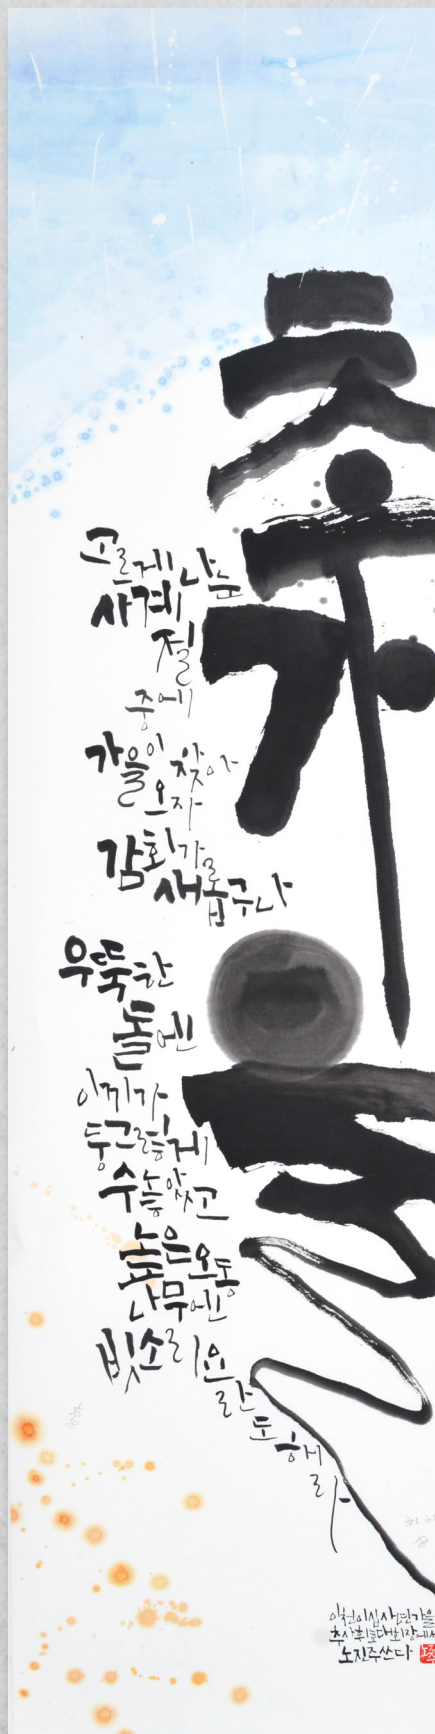 추
가
을
고르게 나눈
사계
절
중에
가을이 찾아
오자
감회가
새롭구나
우뚝한
돌엔
이끼가
둥그렇게
수놓았고
높은 오동
나무엔
빗소리 요
란
도
하여
라
이천이십사년가을
추사휘호대회장에서
노진주쓰다